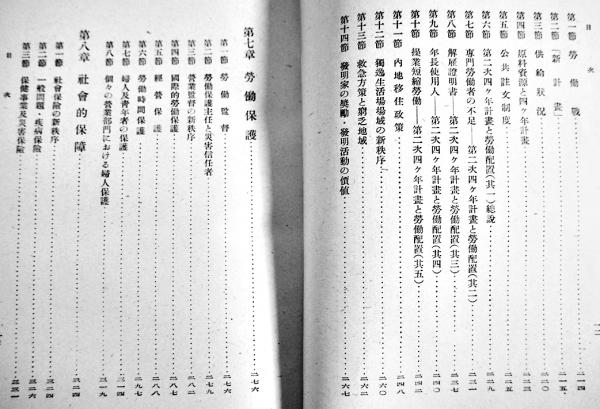 第一節 勞働戰……二一四
第二節 「新計畫」……二一五
第三節 供給狀況
第四節 原料資源と四ヶ年計畫
第五節 公共註文制度
第六節 第二次四ヶ年計畫と勞働配置(其一)總說
第七節 專門勞働者の不足――第二次四ヶ年計畫と勞働配置(其二)
第八節 解雇證明書――第二次四ヶ年計畫と勞働配置(其三)
第九節 年長使用人――第二次四ヶ年計畫と勞働配置(其四)……二四〇
第十節 操業短縮勞働――第二次四ヶ年計畫と勞働配置(其五)
第十一節 內地移住政策……二四八
第十二節 獨逸生活場場域の新秩序……二六〇
第十三節 救急方策と窮乏地域……二六二
第十四節 發明家の奬勵・發明活動の價値……二六七
目次
第七章 勞働保護……二七六
第一節 勞働監督……二七六
第二節 勞働保護主任と災害信任者
第三節 營業監督の新秩序
第四節 國際的勞働保護
第五節 經營保護……二八八
第六節 勞働時間保護
第七節 婦人及靑年者の保護……三一四
第八節 個々の營業部門における婦人保護……三一九
第八章 社會的保障……三二四
第一節 社會保險の新秩序……三二四
第二節 一般問題・疾病保險……三二六
第三節 保健事業及災害保險……三三一
目次